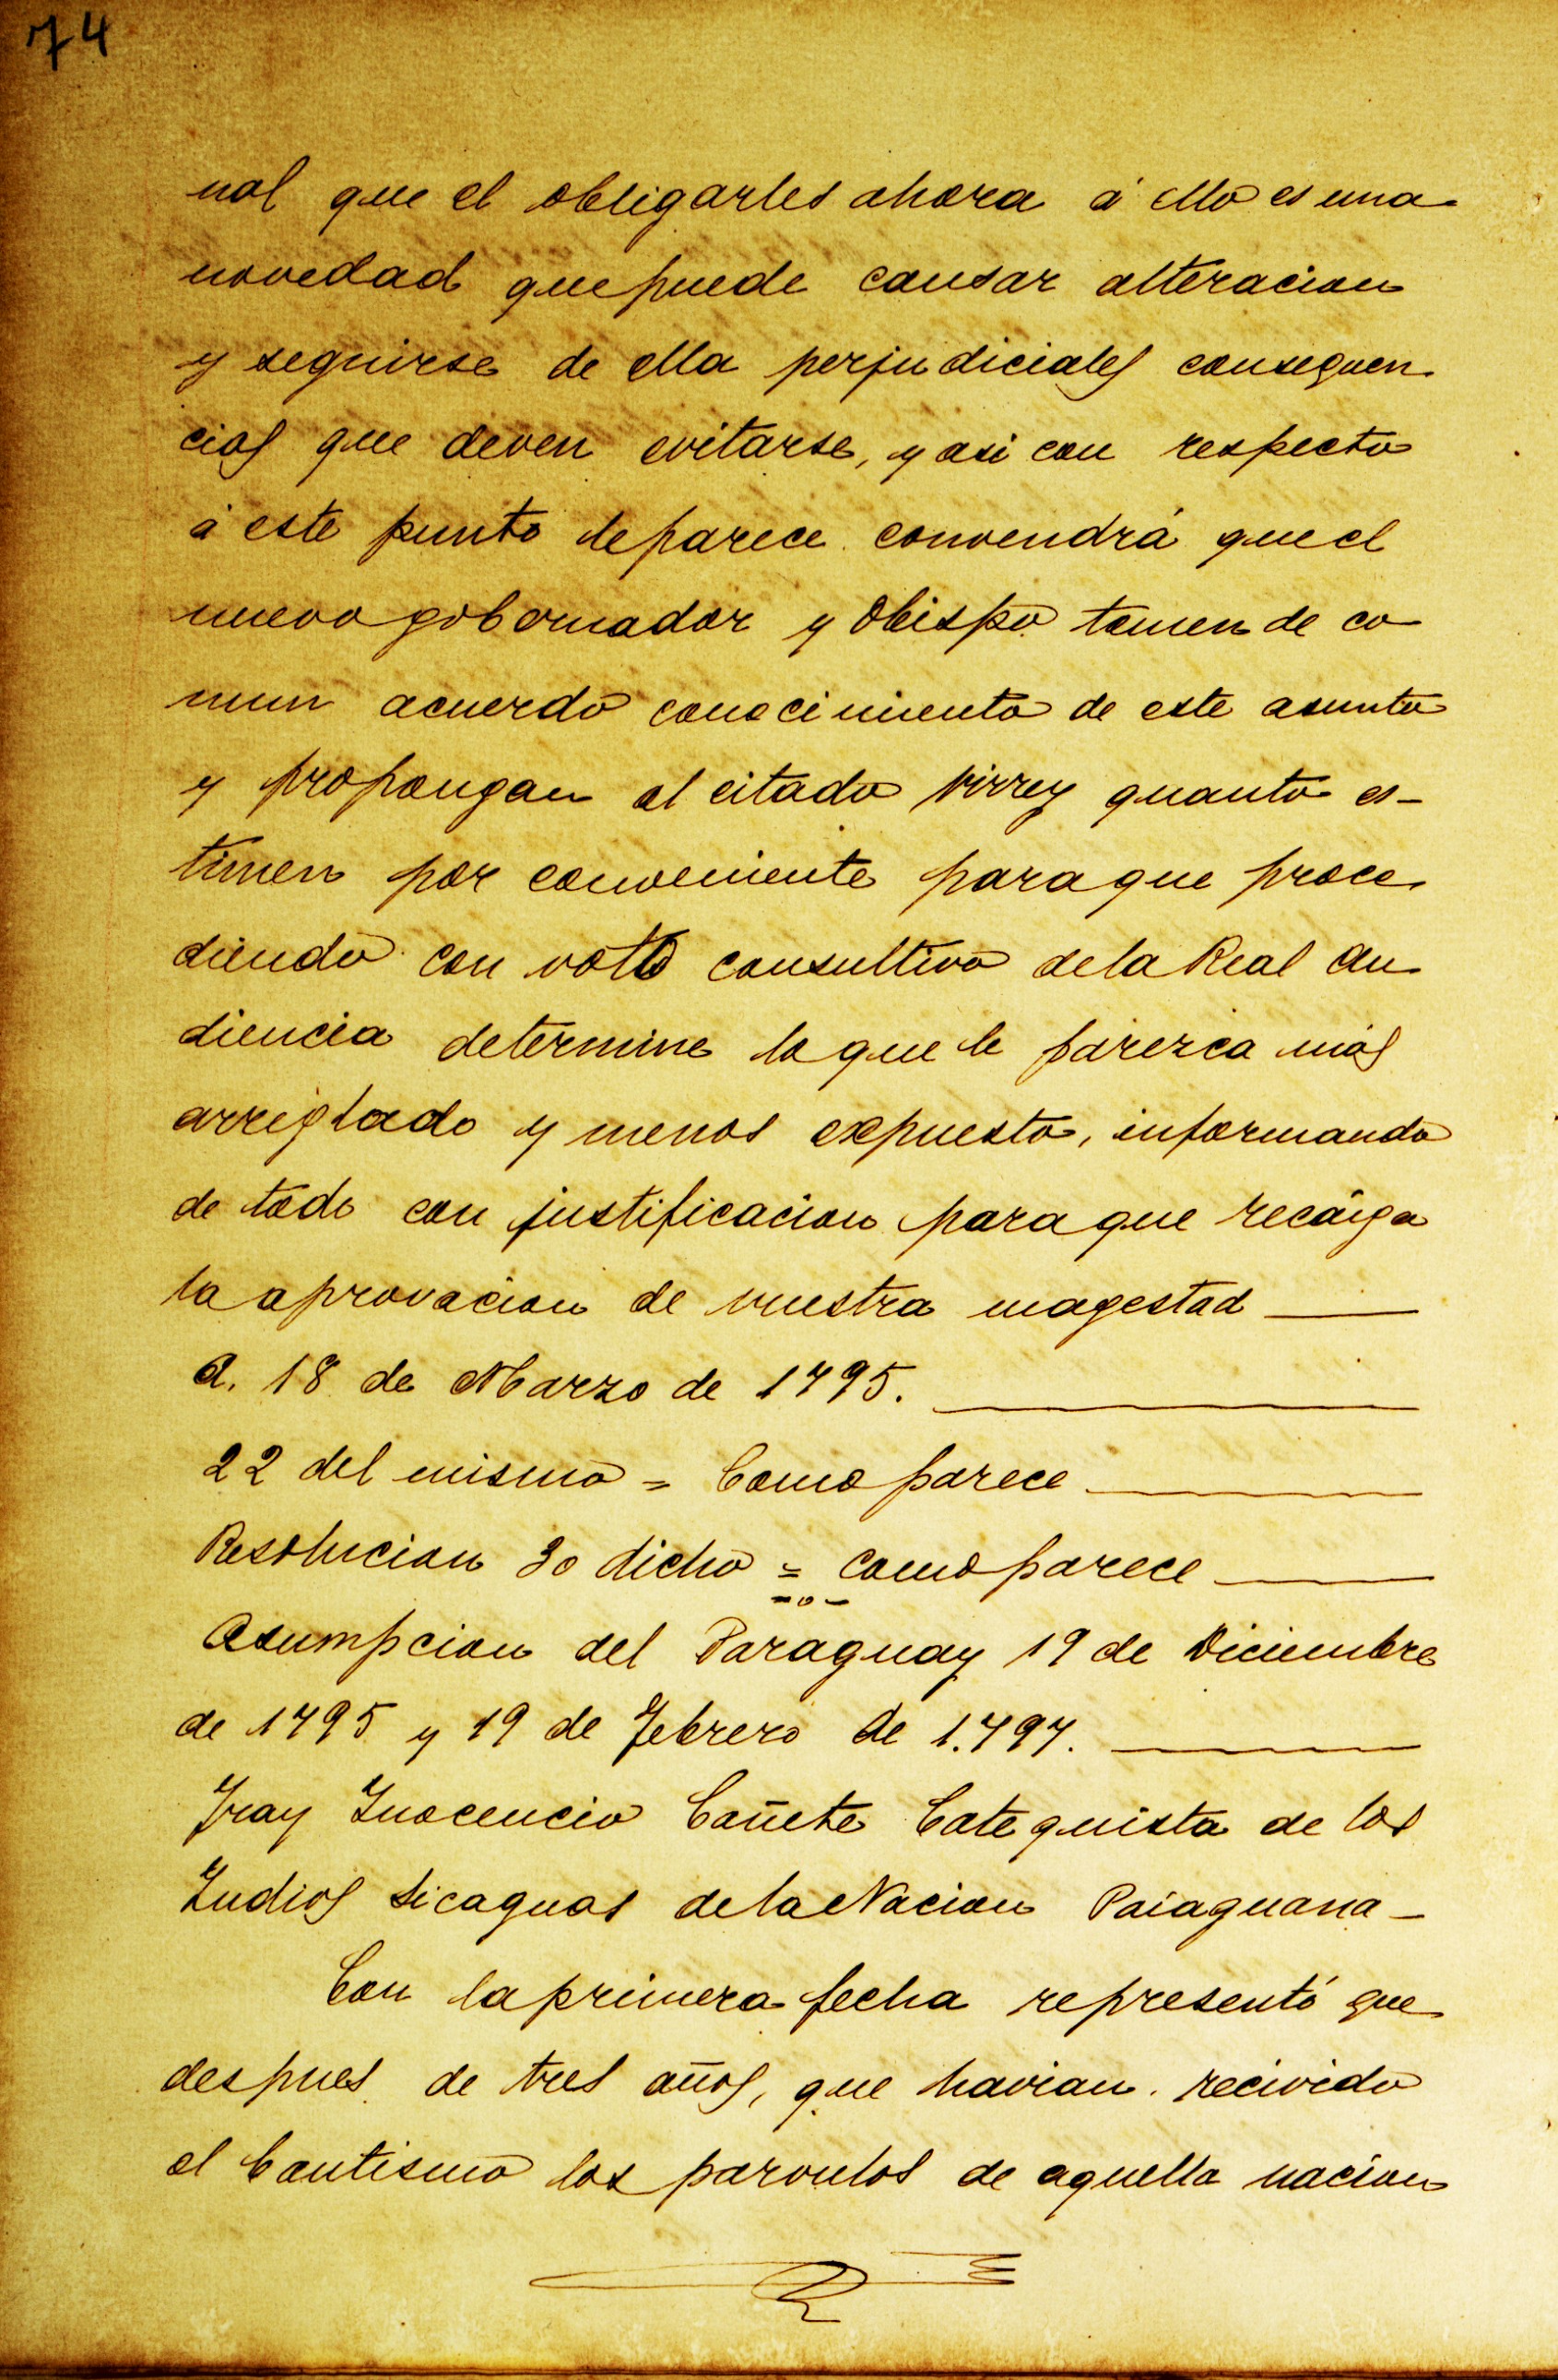 74
nal que el obligarles ahora á ello es una
novedad que puede causar alteracion
y seguirse de ella perjudiciales conseguen
cias que deven evitarse, y asi con respecto
á este punto le parece convendrá que el
nuevo gobernador y Obispo tomen de co
mun acuerdo conocimiento de este asunto
y propongan al citado Virrey quanto es-
timen por conveniente para que proce
diendo con voto consultivo de la Real Au
diencia determine lo que le parezca más
arreglado y menos expuesto, informando
de todo con justificacion para que recaiga
la aprovacion de vuestra magestad
A. 18 de Marzo de 1795.
22 del mismo = Como parece
Resolucion 30 dicho = como parece
Asumpcion del Paraguay 19 de Diciembre
de 1795 y 19 de Febrero de 1.797.
Fray Inocencio Cañete Catequista de los
Indios Sicaguas de la Nacion Paiaguana -
Con la primera fecha representó que
despues de tres años, que havian recivido
el bautismo los parvulos de aquella nacion